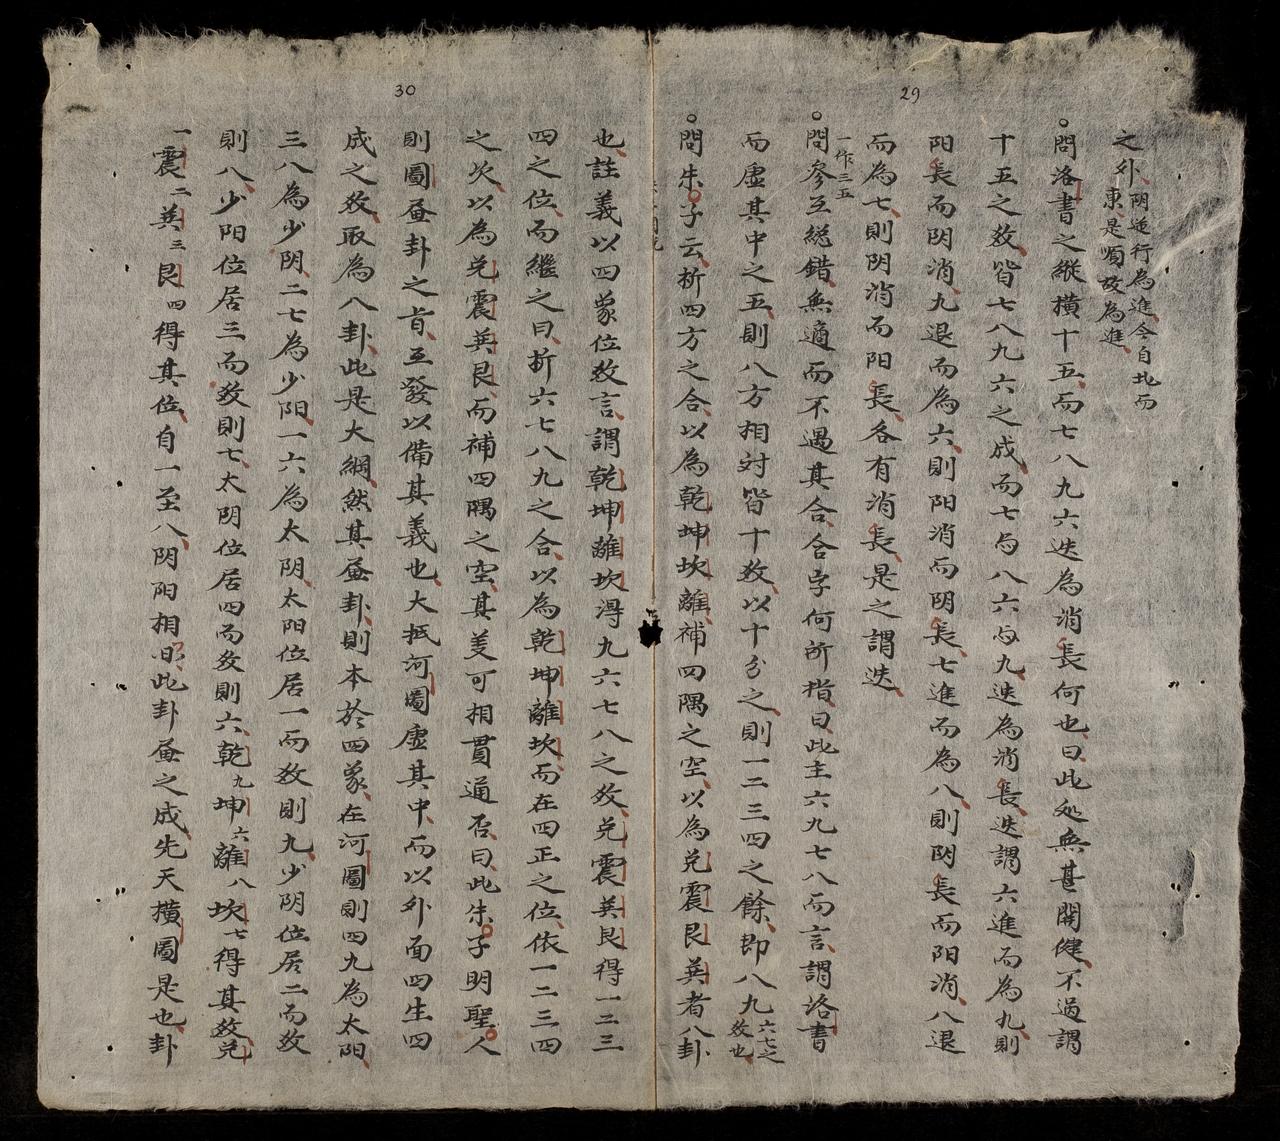 29
之外阴逆行為進今自北而
東是順故為進
○問洛書之縱橫十五而七八九六迭為消長何也曰此処無甚関健不過謂
十五之数皆七八九六之成而七与八六与九迭為消長迭謂六進而為九則
阳長而阴消九退而為六則阳消而阴長七進而為八則阴長而阳消八退
而為七則阴消而阳長各有消長是之謂迭
○問參互総錯無適而不遇其合合字何所指曰此主六九七八而言謂洛書
一作三五
而虚其中之五則八方相対皆十数以十分之則一二三四之餘即八九六七之
数也
○問朱子云析四方之合以為乾坤坎離補四隅之空以為兑震艮巽者八卦
30
也註義以四象位数言謂乾坤離坎得九六七八之数兑震巽艮得一二三
四之位而繼之曰折六七八九之合以為乾坤離坎而在四正之位依一二三四
之次以為兑震巽艮而補四隅之空其义可相貫通否曰此朱子明聖人
則圖画卦之旨互發以備其義也大抵河圖虚其中而以外面四生四
成之数取為八卦此是大綱然其画卦則本於四象在河圖則四九為太阳
三八為少阴二七為少阳一六為太阴太阳位居一而数則九少阴位居二而数
則八少阳位居三而数則七太阴位居四而数則六乾九坤六離八坎七得其数兑
一震二巽三艮四得其位自一至八阴阳相 此卦画之成先天橫圖是也卦